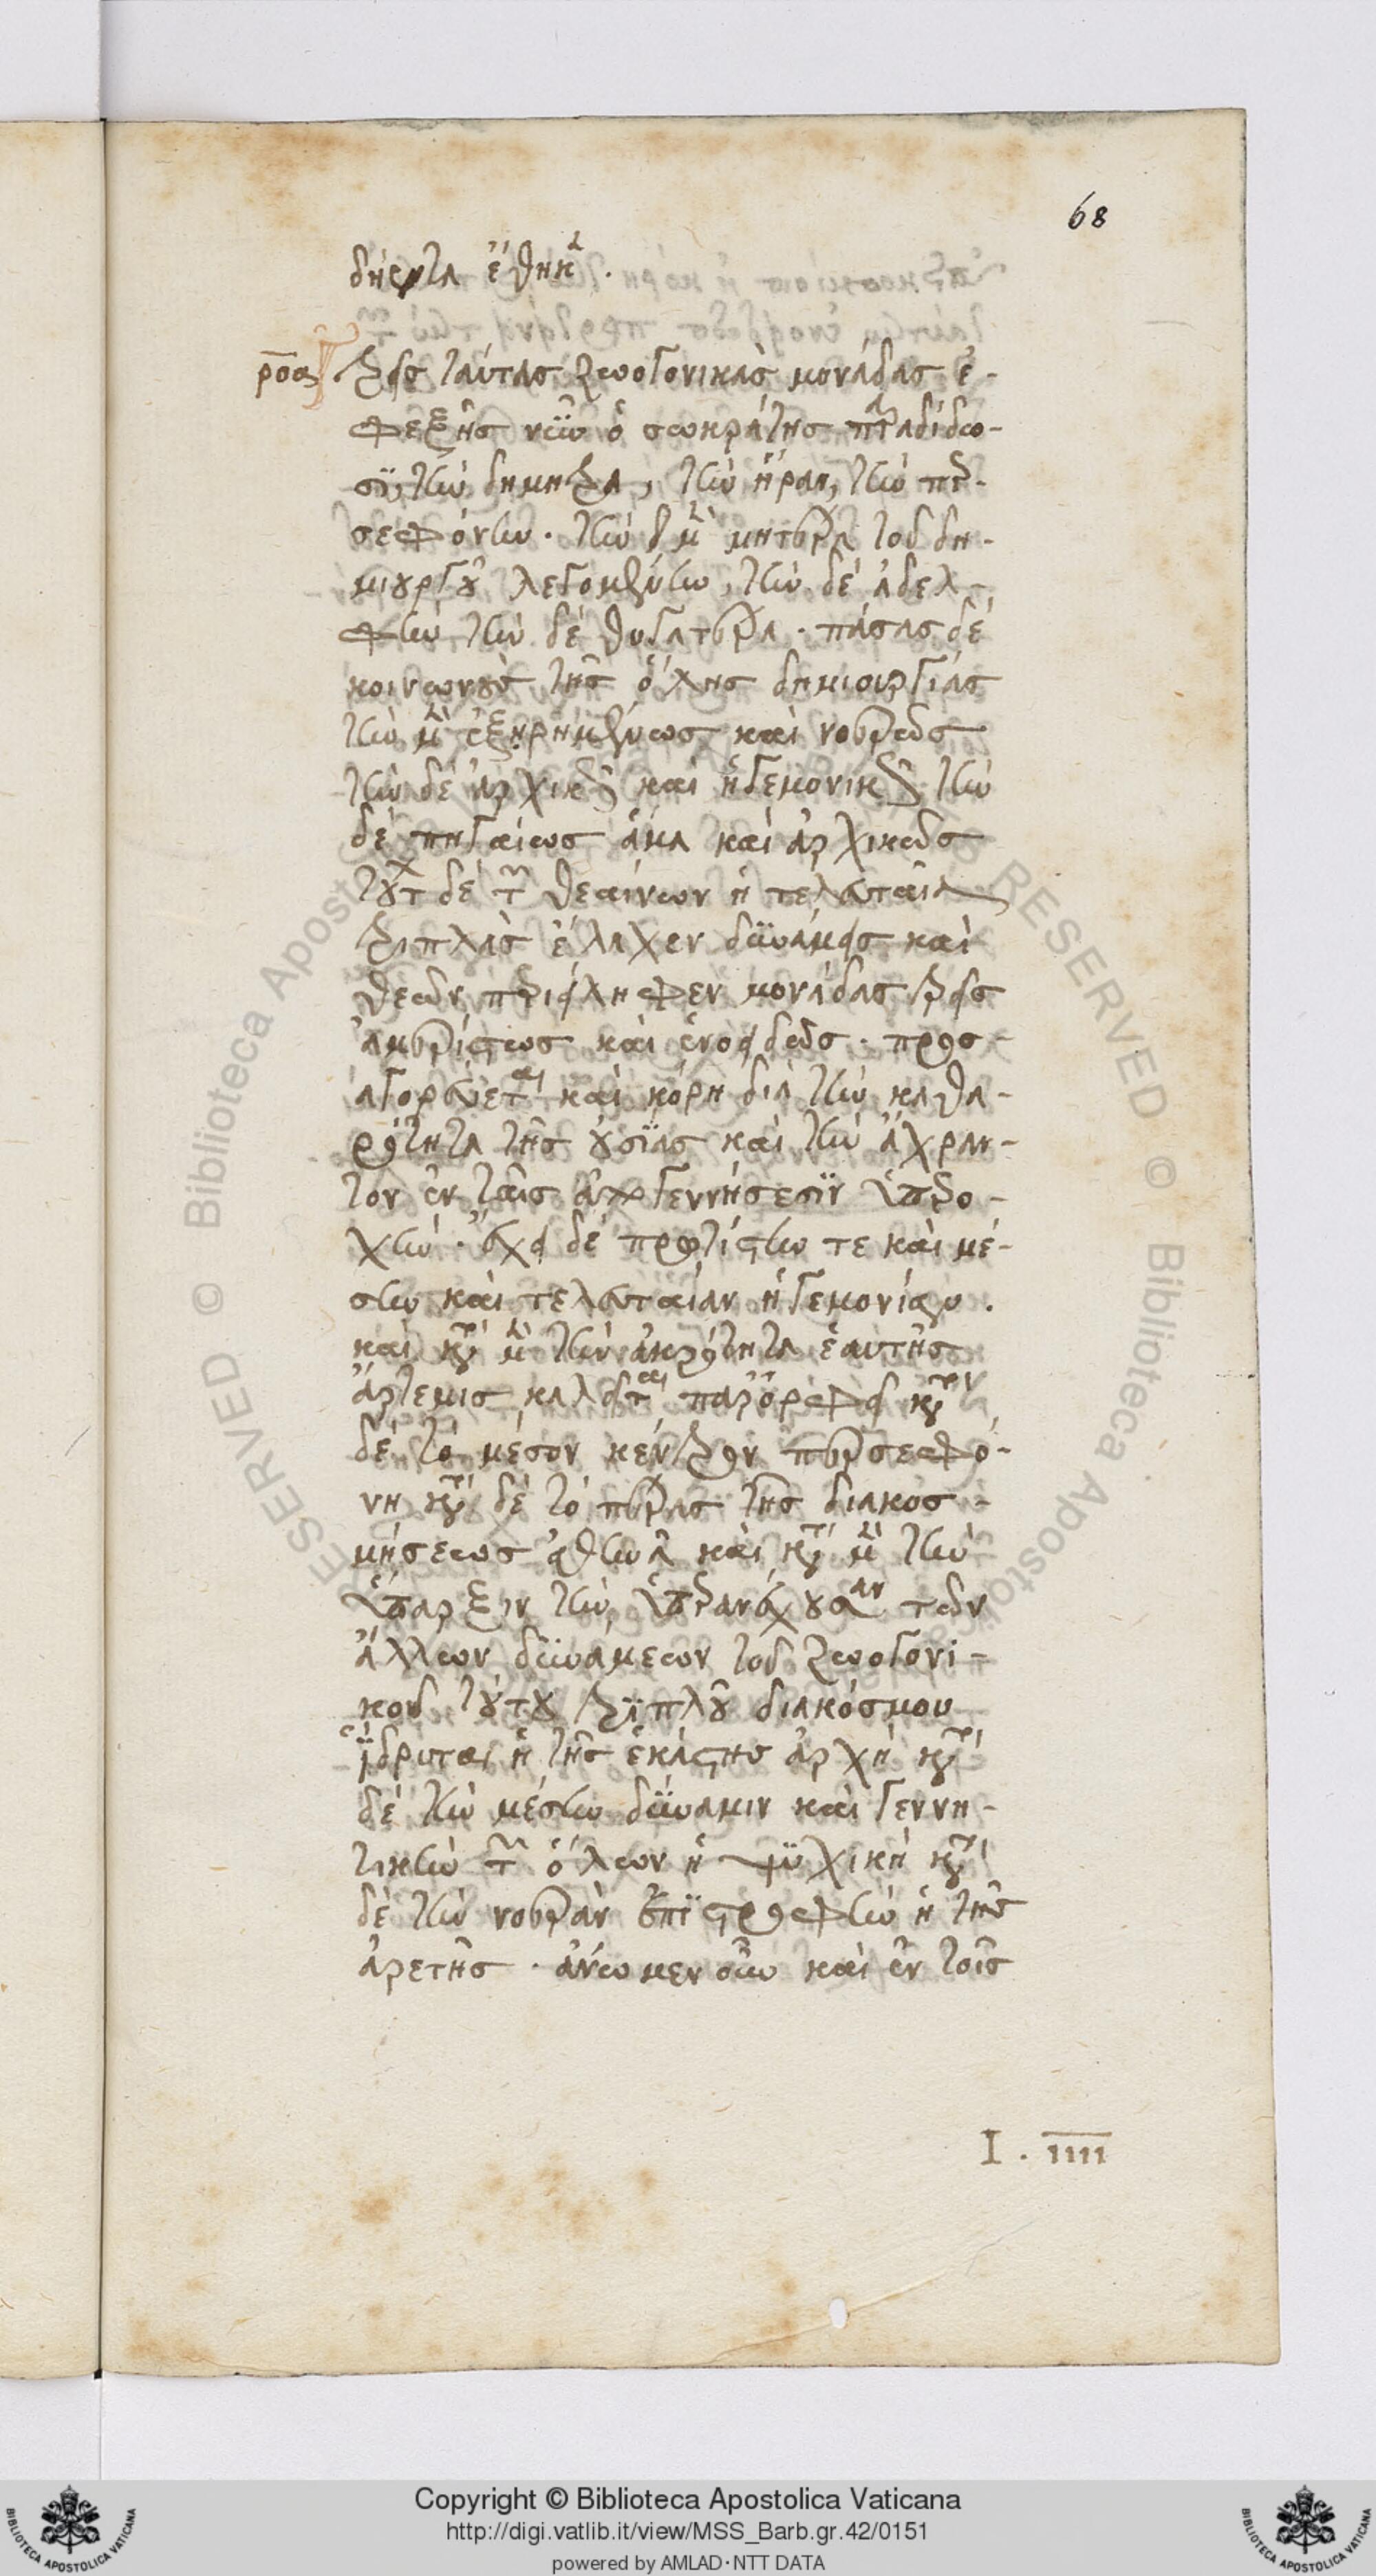 68
δήεντα ἔθηκε.
ροα Τρεῖς ταύτας ζωογονικὰς μονάδας ἐ-
φεξῆς νῦν ὁ σωκράτης παραδίδω-
σι, τὴν δήμητρα, τὴν ἥραν, τὴν περ-
σεφόνην. τὴν μὲν μητέρα τοῦ δη-
μιουργοῦ λεγομένην, τὴν δὲ ἀδελ-
φὴν τὴν δὲ θυγατέρα. πάσας δὲ
κοινωνοὺς τῆς ὅλης δημιουργίας
τὴν μὲν ἐξῃρημένως καὶ νοερῶς
τὴν δὲ ἀρχικῶς καὶ ἡγεμονικῶς τὴν
δὲ πηγαίως ἅμα καὶ ἀρχικῶς
τούτων δὲ τῶν θεαινῶν ἡ τελευταία
τριπλὰς ἔλαχεν δυνάμεις καὶ
θεῶν περιείληφεν μονάδας τρεῖς
ἀμερίστως καὶ ἑνοειδῶς. προσ-
αγορεύεται καὶ κόρη διὰ τὴν καθα-
ρότητα τῆς οὐσίας καὶ τὴν ἄχραν-
τον ἐν ταῖς ἀπογεννήσεσιν ὑπερο-
χήν. ἔχει δὲ πρωτίστην τε καὶ μέ-
σην καὶ τελευταίαν ἡγεμονίαν.
καὶ κατὰ μὲν τὴν ἀκρότητα ἑαυτῆς
ἄρτεμις καλεῖται παρ' ὀρφεῖ κατὰ
δὲ τὸ μέσον κέντρον περσεφό-
νη κατὰ δὲ τὸ πέρας τῆς διακοσ-
μήσεως ἀθηνᾶ καὶ κατὰ μὲν τὴν
ὕπαρξιν τὴν ὑπερανέχουσαν τῶν
ἄλλων δυνάμεων τοῦ ζωογονι-
κοῦ τούτου τριπλοῦ διακόσμου
ἵδρυται ἡ τῆς ἑκάτης ἀρχὴ κατὰ
δὲ τὴν μέσην δύναμιν καὶ γεννη-
τικὴν τῶν ὅλων ἡ ψυχικὴ κατὰ
δὲ τὴν νοερὰν ἐπιστροφὴν ἡ τῆς
ἀρετῆς. ἄνω μεν οὖν καὶ ἐν τοῖς
I . IIII
© Biblioteca Apostolica Vaticana RESERVED
Copyright © Biblioteca Apostolica Vaticana
http://digi.vatlib.it/view/MSS_Barb.gr.42/0151
powered by AMLAD·NTT DATA
BIBLIOTECA APOSTOLICA VATICANA
BIBLIOTECA APOSTOLICA VATICANA